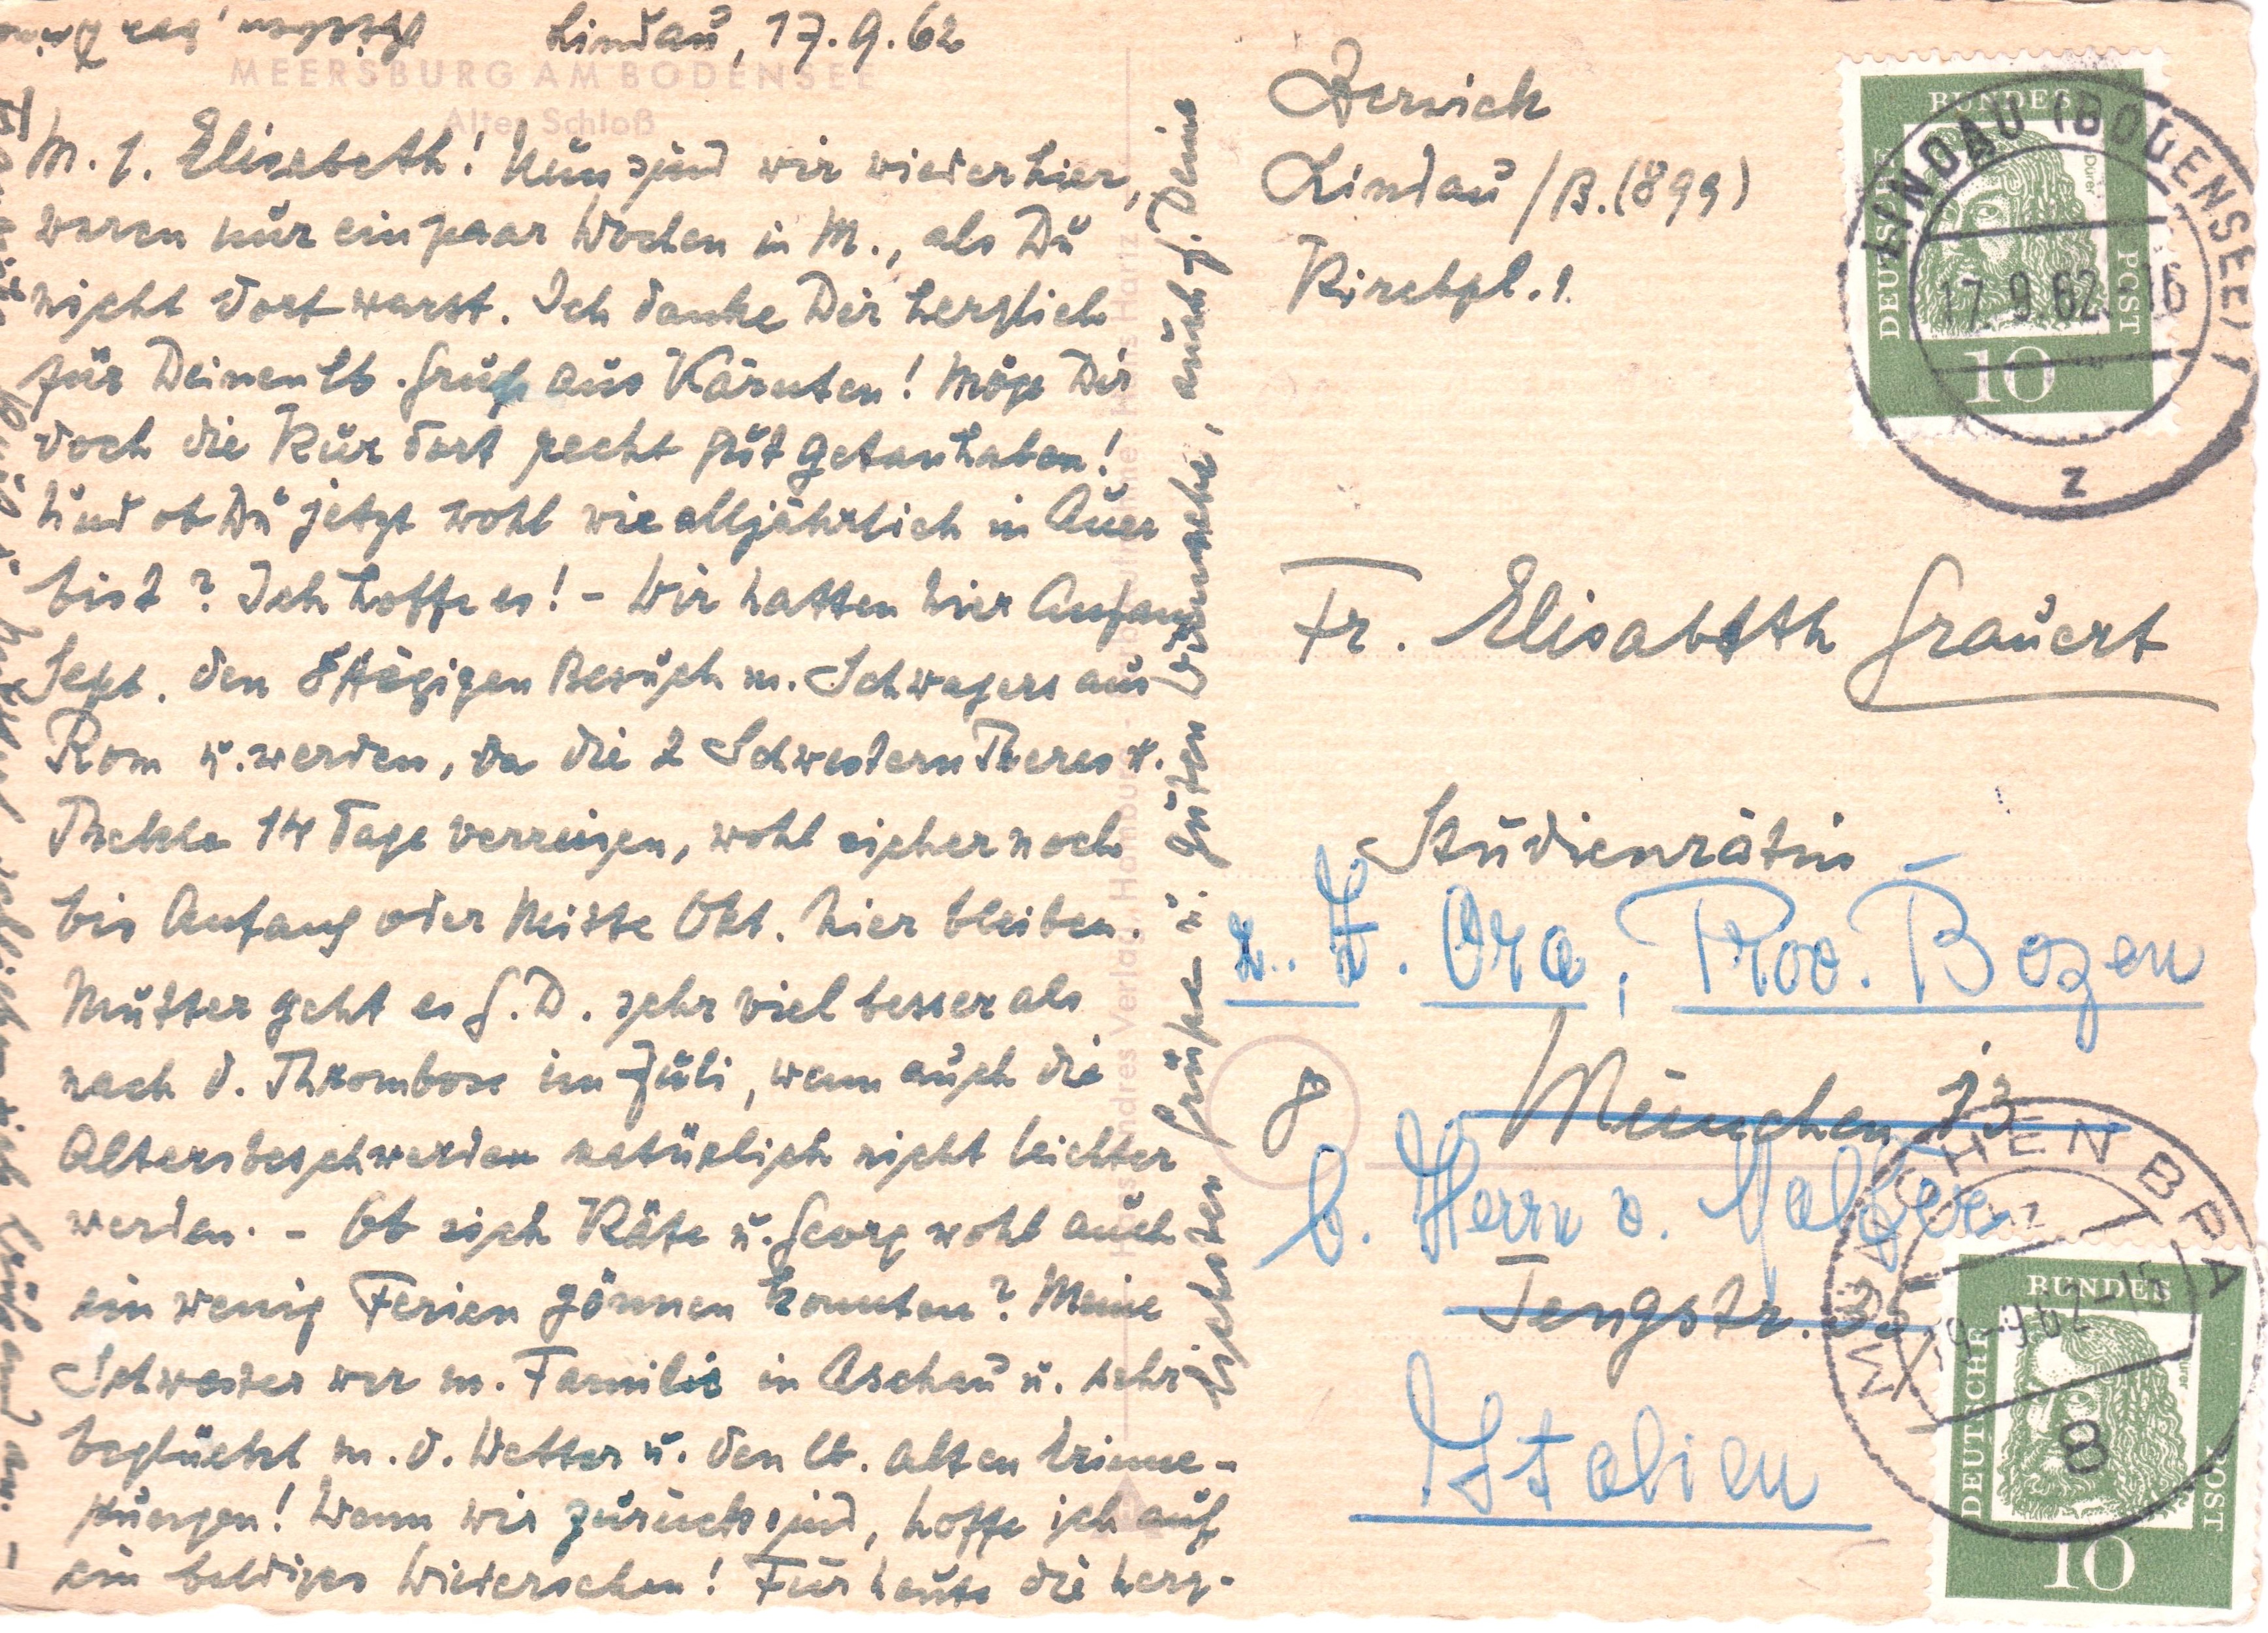 Lindau, 17.9.62
MEERSBURG AM BODENSEE
Altes Schloß
M. l. Elisabeth! Nun sind wir wieder hier,
waren nur ein paar Wochen in M., als Du
nicht dort warst. Ich danke Dir herzlich
für Deinen lb. Gruß aus Kärnten! Möge Dir
doch die Kur dort recht gut getan haben!
Und ob Du jetzt wohl wie alljährlich in Auer
bist? Ich hoffe es! - Wir hatten hier Anfang
Sept. den 8tägigen Besuch m. Schwagers aus
Rom u. werden, da die 2 Schwestern Theres u.
Thekla 14 Tage verreisen, wohl sicher noch
bis Anfang oder Mitte Okt. hier bleiben.
Mutter geht es G. D. sehr viel besser als
nach d. Thrombose im Juli, wenn auch die
Altersbeschwerden natürlich nicht leichter
werden. - Ob sich Käte u. Georg wohl auch
ein wenig Ferien gönnen konnten? Meine
Schwester war m. Familie in Aschau u. sehr
beglückt m. d. Wetter u. den lb. alten Erinne-
rungen! Wenn wir zurück sind, hoffe ich auf
ein baldiges Wiedersehen! Für heute die herz-
lichsten Grüße u. guten Wünsche, auch f. Deine
Derwick
Lindau /B. (899)
Kirchpl. 1.
Fr. Elisabeth Grauert
Studienrätin
z. Z. Ora, Prov. Bozen
8 München 13
b. Herrn v.
Tengstr.
Italien
DEUTSCHE BUNDESPOST
Dürer
10
LINDAU (BODENSEE) 1
17.9.62.-16
z
DEUTSCHE BUNDESPOST
Dürer
10
MÜNCHEN BPA
-9.62-15
8